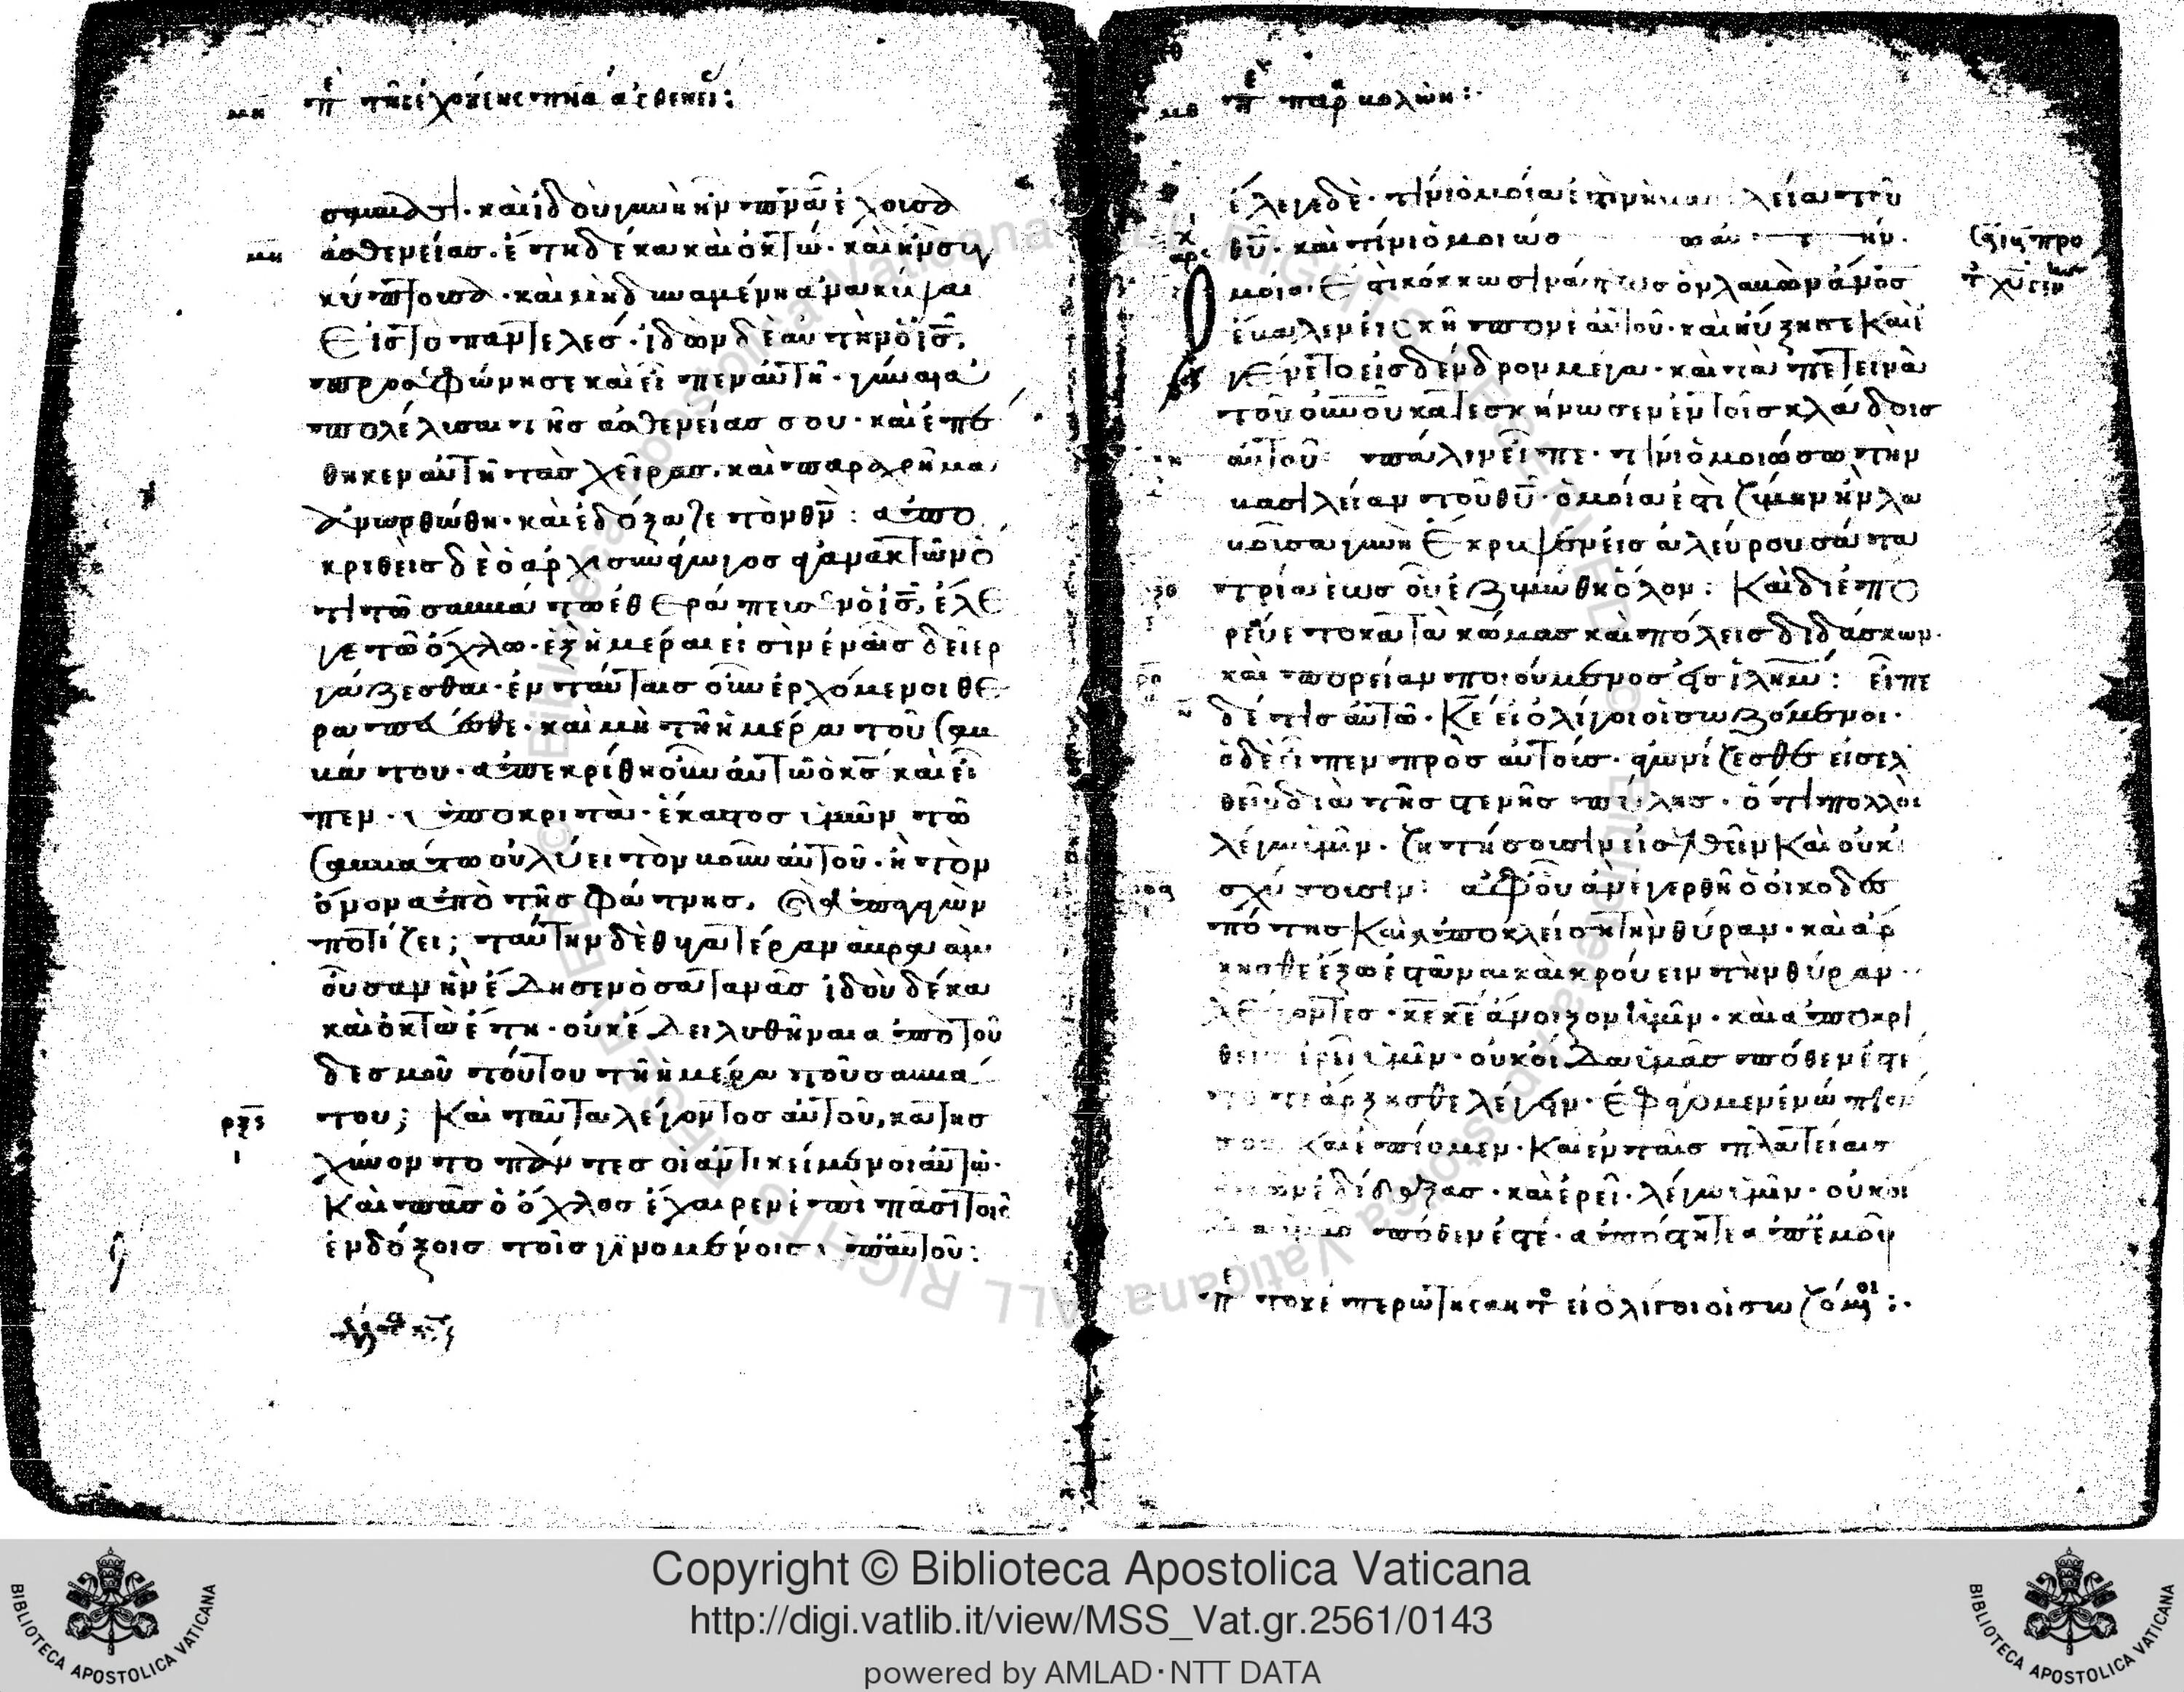 μη πε της εχουσης πνα ασθενεί:
σάββασι· καὶ ἰδοὺ γυνὴ ἦν πνα ἔχουσα
μη ἀσθενείας· ἔτη δέκα καὶ ὀκτώ· καὶ ἦν συγ
κύπτουσα· καὶ μὴ δυναμένη ἀνακύψαι
εἰς τὸ παντελές· ἰδὼν δὲ αὐτὴν ὁ ις,
προσεφώνησε καὶ εἶπεν αὐτῇ· γύναι ἀ
πολέλυσαι τῆς ἀσθενείας σου· καὶ ἐπέ
θηκεν αὐτῇ τὰς χεῖρας· καὶ παραχρῆμα
ἀνωρθώθη· καὶ ἐδόξαζε τὸν θν: ἀπο
κριθεὶς δὲ ὁ ἀρχισυνάγωγος ἀγανακτῶν ὅ
τι τῷ σαββάτω ἐθεράπευσεν ὁ ις, ἔλε
γε τῷ ὄχλω· ἓξ ἡμέραι εἰσὶν ἐν αἷς δεῖ ἐρ
γάζεσθαι· ἐν ταύταις οὖν ἐρχόμενοι θε
ραπεύεσθε· καὶ μὴ τῇ ἡμέρα τοῦ σαβ
βάτου· ἀπεκρίθη οὖν αὐτῶ ὁ κς καὶ εἶ
πεν· ὑποκριταί· ἕκαστος ὑμῶν τῶ
σαββάτω οὐ λύει τὸν βοῦν αὐτοῦ· ἢ τὸν
ὄνον ἀπὸ τῆς φάτνης, καὶ ἀπαγαγὼν
ποτίζει; ταύτην δὲ θυγατέραν ἀβραὰμ
οὖσαν ἣν ἔδησεν ὁ σατανᾶς ἰδοὺ δέκα
καὶ ὀκτὼ ἔτη· οὐκ ἔδει λυθῆναι ἀπὸ τοῦ
δεσμοῦ τούτου τῇ ἡμέρα τοῦ σαββά
ρξς του; Καὶ ταῦτα λέγοντος αὐτοῦ, κατῃς
χύνοντο πάντες οἱ ἀντικείμενοι αὐτῶ·
Καὶ πᾶς ὁ ὄχλος ἔχαιρεν ἐπὶ πᾶσι τοῖς
ἐνδόξοις τοῖς γινομένοις ὑπ' αὐτοῦ:
μθ πε παρα βολων:
ἔλεγε δὲ· τίνι ὁμοία ἐστὶν ἡ βασιλεία τοῦ
θυ· καὶ τίνι ὁμοιώσω αὐτήν·
μοία ἐστὶ κόκκω σινάπεως ὃν λαβὼν ἄνος
ἔβαλεν εἰς κῆπον ἑαυτοῦ· καὶ ηὔξησε καὶ ἐ
γένετο εἰς δένδρον μέγα· καὶ τὰ πετεινὰ
τοῦ οὐνοῦ κατεσκήνωσεν ἐν τοῖς κλάδοις
αὐτοῦ: πάλιν εἶπε· τίνι ὁμοιώσω τὴν
βασιλείαν τοῦ θυ· ὁμοία ἐστὶ ζύμη ἣν λα
βοῦσα γυνὴ ἔκρυψεν εἰς ἀλεύρου σάτα
τρία ἕως οὗ ἐζυμώθη ὅλον: Καὶ διεπο
ρεύετο κατὰ κώμας καὶ πόλεις διδάσκων·
καὶ πορείαν ποιούμενος εἰς ἱλημ: εἶπε
δέ τις αὐτῶ· Κε εἰ ὀλίγοι οἱ σωζόμενοι·
ὁ δὲ εἶπεν πρὸς αὐτούς· ἀγωνίζεσθε εἰσελ
θεῖν διὰ τῆς στενῆς πύλης· ὅτι πολλοὶ
λέγω ὑμῖν· ζητήσουσιν εἰσελθεῖν καὶ οὐκ ἰ
σχύσουσιν: ἀφ' οὗ ἂν ἐγερθῇ ὁ οἰκοδεσ
πότης καὶ ἀποκλείση τὴν θύραν· καὶ ἄρ
ξησθε ἔξω ἑστάναι καὶ κρούειν τὴν θύραν·
λέγοντες· κε κε ἄνοιξον ἡμῖν· καὶ ἀποκρι
θεὶς ἐρεῖ ὑμῖν· οὐκ οἶδα ὑμᾶς πόθεν ἐστέ
τότε ἄρξησθε λέγειν· ἐφάγομεν ἐνώπιον
σου καὶ ἐπίομεν· Καὶ ἐν ταῖς πλατείαις
ἡμῶν ἐδίδαξας· καὶ ἐρεῖ· λέγω ὑμῖν· οὐκ οἶ
δα ὑμᾶς πόθεν ἐστέ· ἀπόστητε ἀπ' ἐμοῦ
πε του επερωτησαντος ει ολιγοι οι σωζομενοι:
Copyright © Biblioteca Apostolica Vaticana
http://digi.vatlib.it/view/MSS_Vat.gr.2561/0143
powered by AMLAD·NTT DATA
BIBLIOTECA APOSTOLICA VATICANA
BIBLIOTECA APOSTOLICA VATICANA